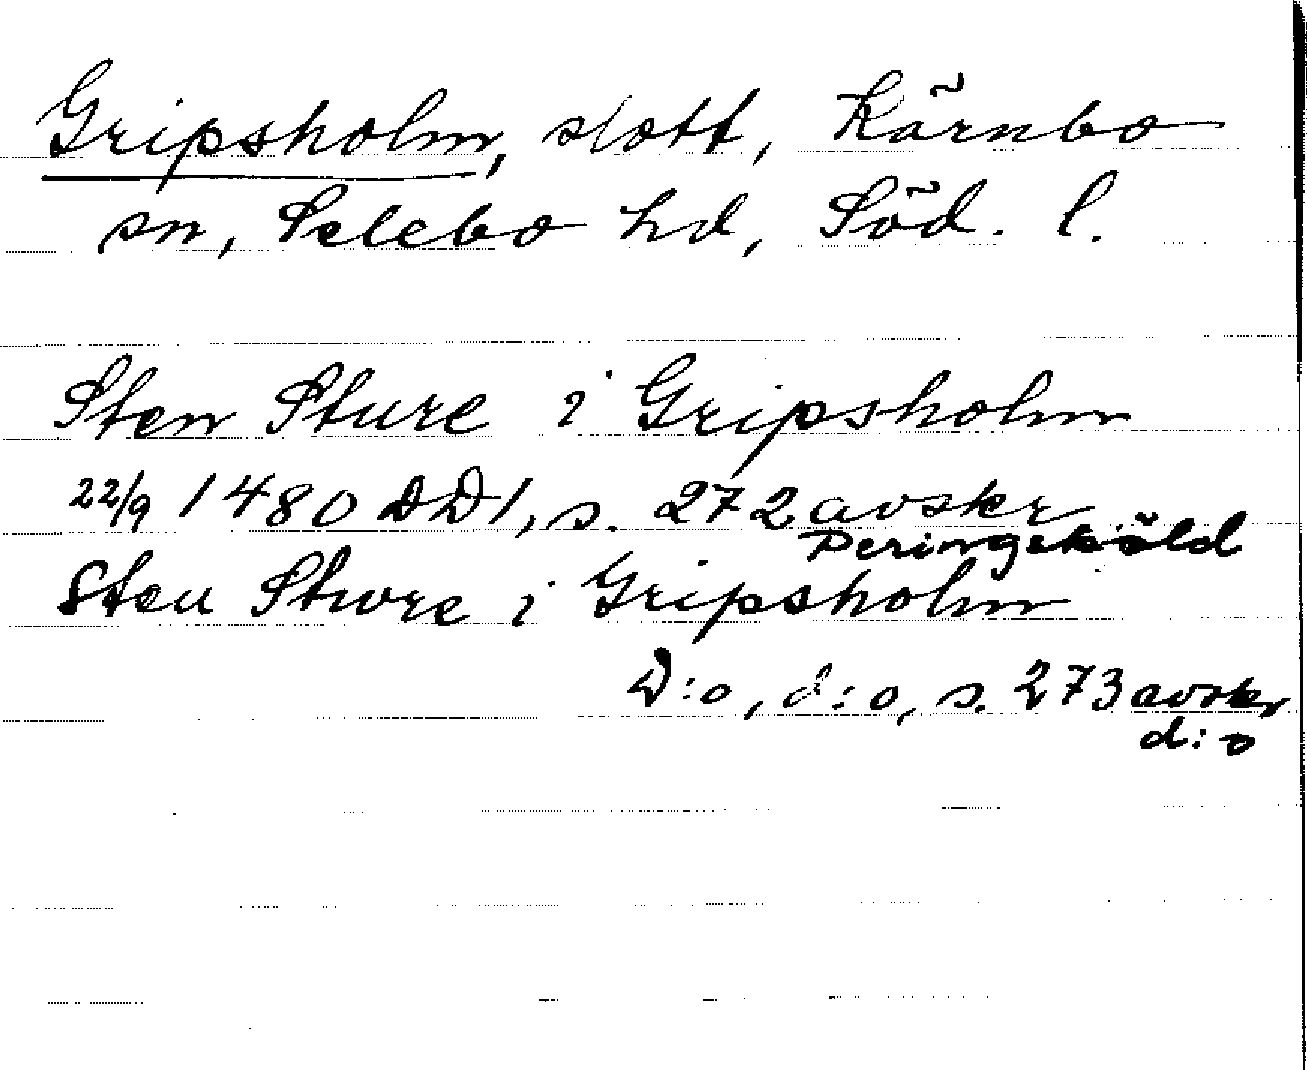 Gripsholm, slott, Kärnbo
sn, Selebo hd, Söd. l.
Sten Sture i Gripsholm
22/9 1480 DD1, s. 272 avskr
Peringsköld
Sten Stwre i Gripsholm
D:o, d:o, s. 273 avskr
d:o